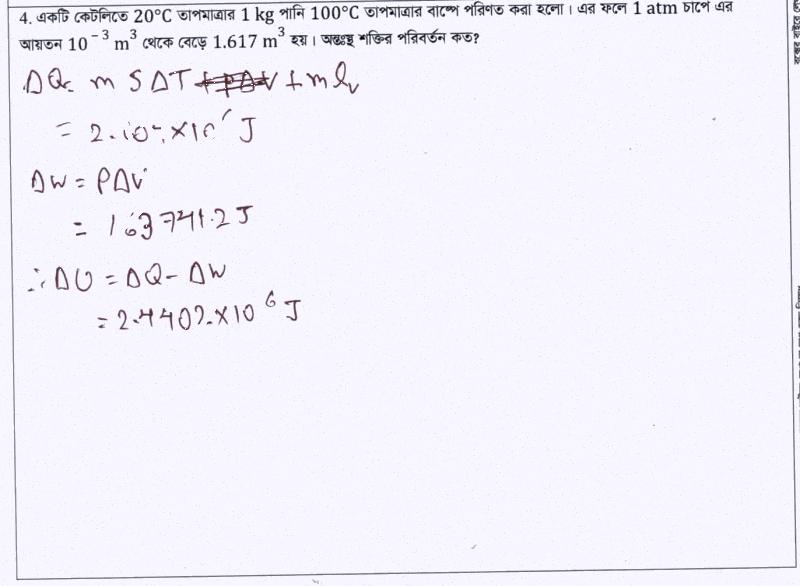 4. একটি কেটলিতে 20°C তাপমাত্রার 1 kg পানি 100°C তাপমাত্রার বাষ্পে পরিণত করা হলো। এর ফলে 1 atm চাপে এর
আয়তন 10⁻³ m³ থেকে বেড়ে 1.617 m³ হয়। অন্তঃস্থ শক্তির পরিবর্তন কত?
ΔQ = m S ΔT + m lᵥ
= J
ΔW = PΔV
= 163741.2 J
∴ ΔU = ΔQ - ΔW
= 2.4402 × 10⁶ J